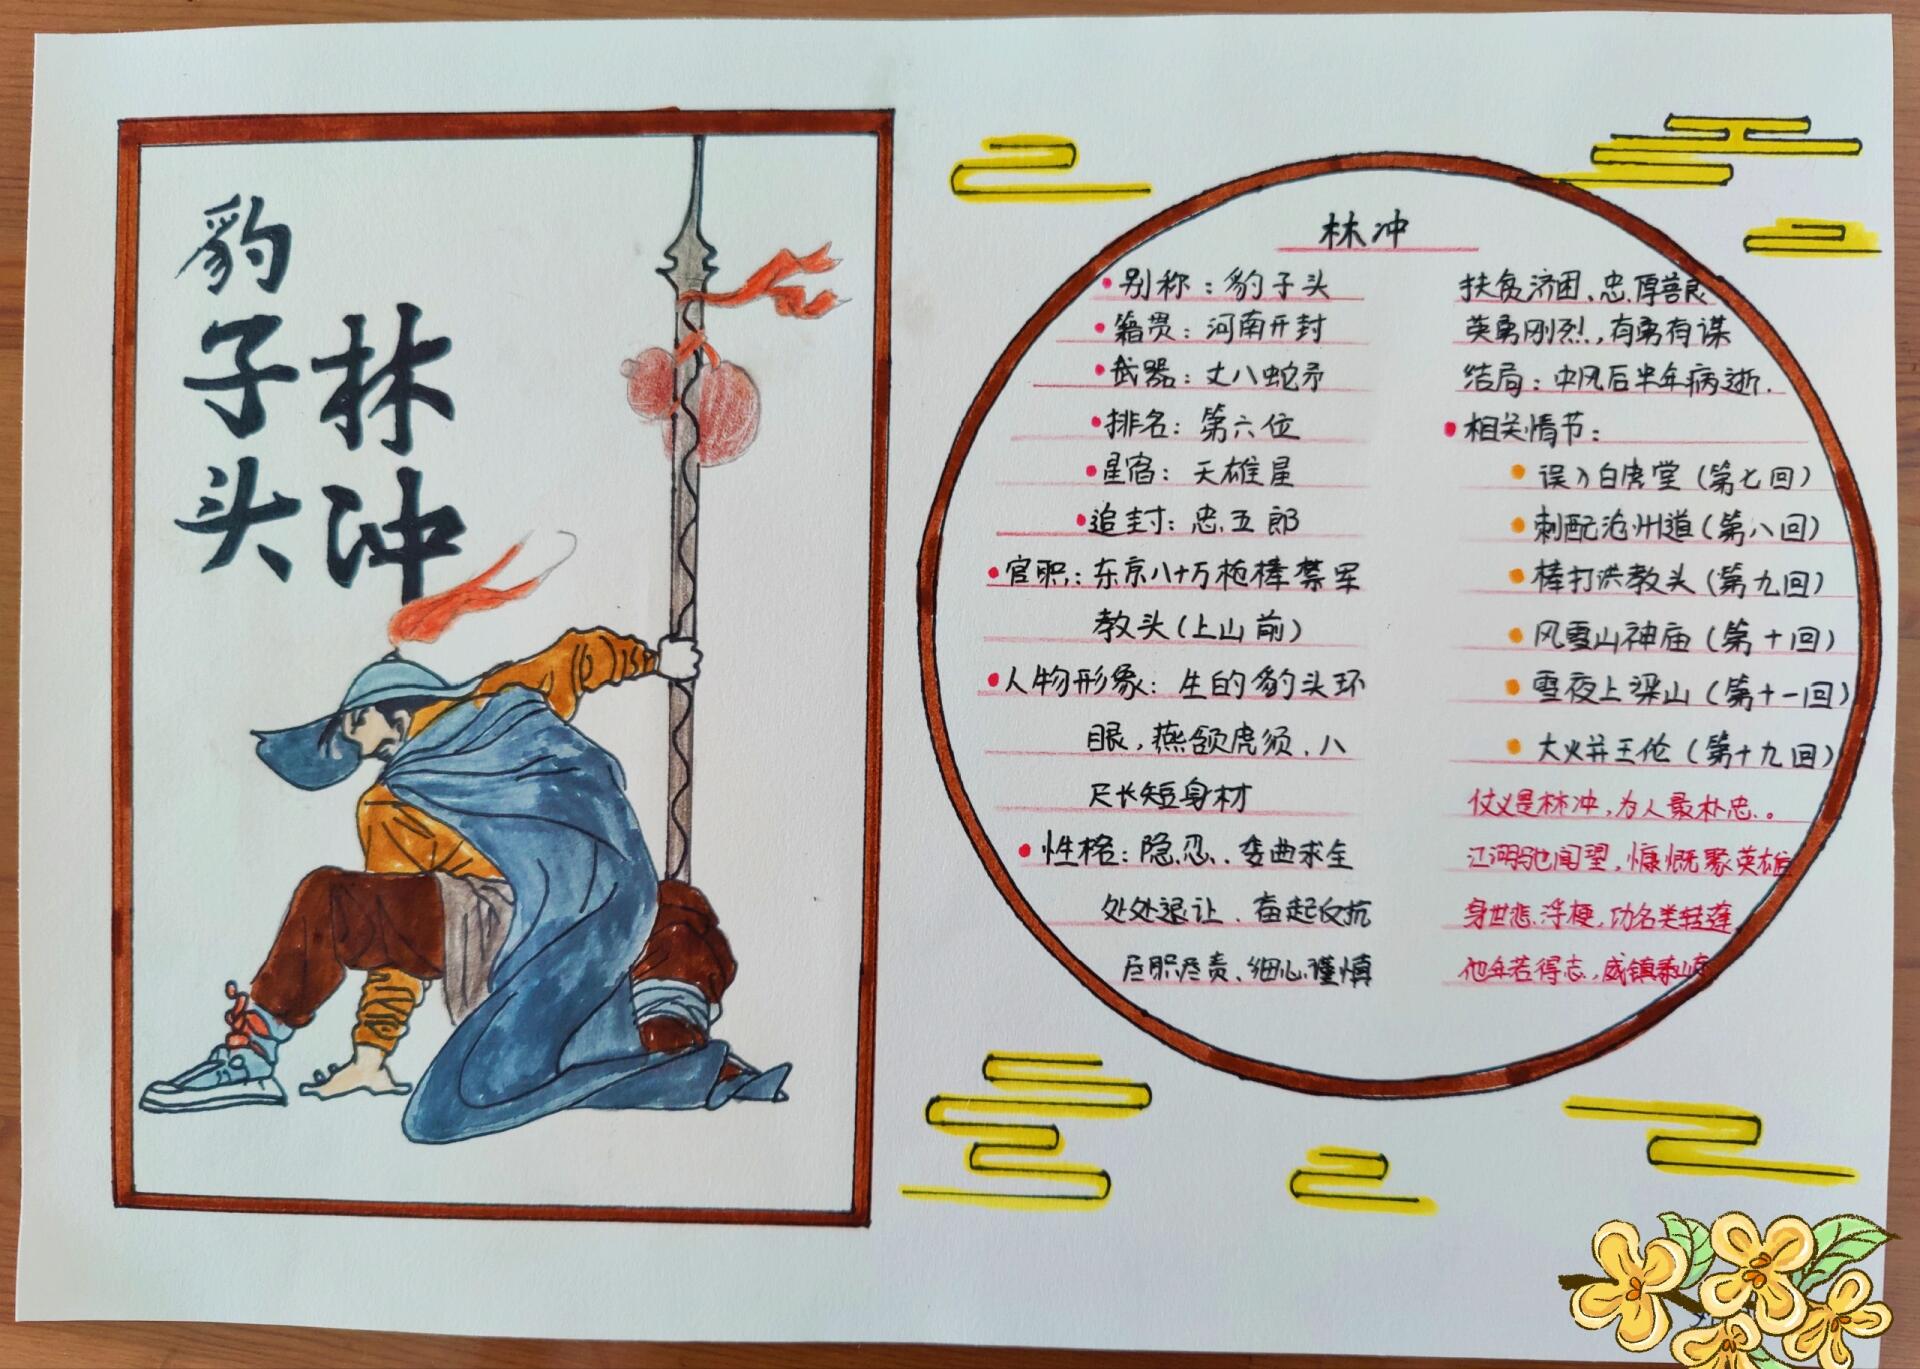 豹子头
林冲
林冲
别称：豹子头
籍贯：河南开封
武器：丈八蛇矛
排名：第六位
星宿：天雄星
追封：忠五郎
官职：东京八十万枪棒禁军
教头（上山前）
人物形象：生的豹头环
眼，燕颔虎须、八
尺长短身材
性格：隐忍、委曲求全
处处退让、奋起反抗
尽职尽责、细心谨慎
扶负济困、忠厚善良
英勇刚烈，有勇有谋
结局：中风后半年病逝.
相关情节：
误入白虎堂（第七回）
刺配沧州道（第八回）
棒打洪教头（第九回）
风雪山神庙（第十回）
雪夜上梁山（第十一回）
大火并王伦（第十九回）
仗义是林冲，为人最朴忠。
江湖驰闻望，慷慨聚英雄
身世悲浮梗，功名类转蓬
他年若得志，威镇泰山东